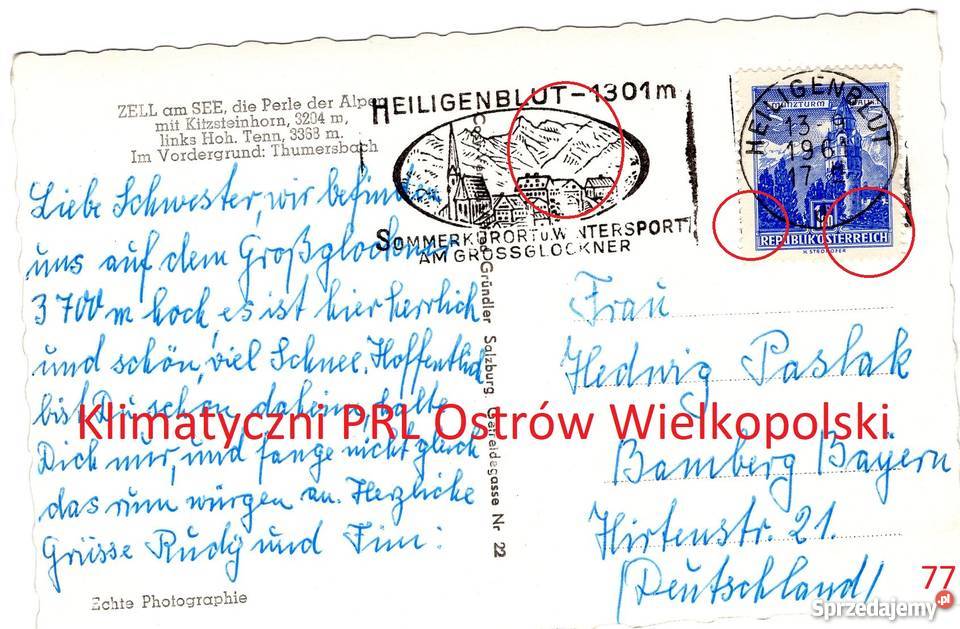 ZELL am SEE, die Perle der Alpen
mit Kitzsteinhorn, 3204 m,
links Hoh. Tenn, 3368 m.
Im Vordergrund: Thumersbach
HEILIGENBLUT-1301m
SOMMERKURORT U. WINTERSPORT
AM GROSSGLOCKNER
HEILIGENBLUT
1961
REPUBLIK ÖSTERREICH
Liebe Schwester, wir befinden
uns auf dem Großglockner
3700 m hoch, es ist hier herrlich
und schön, viel Schnee. Hoffentlich
bist Du schon daheim, halte
Dich nur, und fange nicht gleich
das rum würgen an. Herzliche
Grüsse Rudy und Fini:
Gründler Salzburg, Getreidegasse Nr 22
Echte Photographie
Frau
Hedwig Paslak
Bamberg Bayern
Hirtenstr. 21.
/Deutschland/
Klimatyczni PRL Ostrów Wielkopolski
77
Sprzedajemy.pl